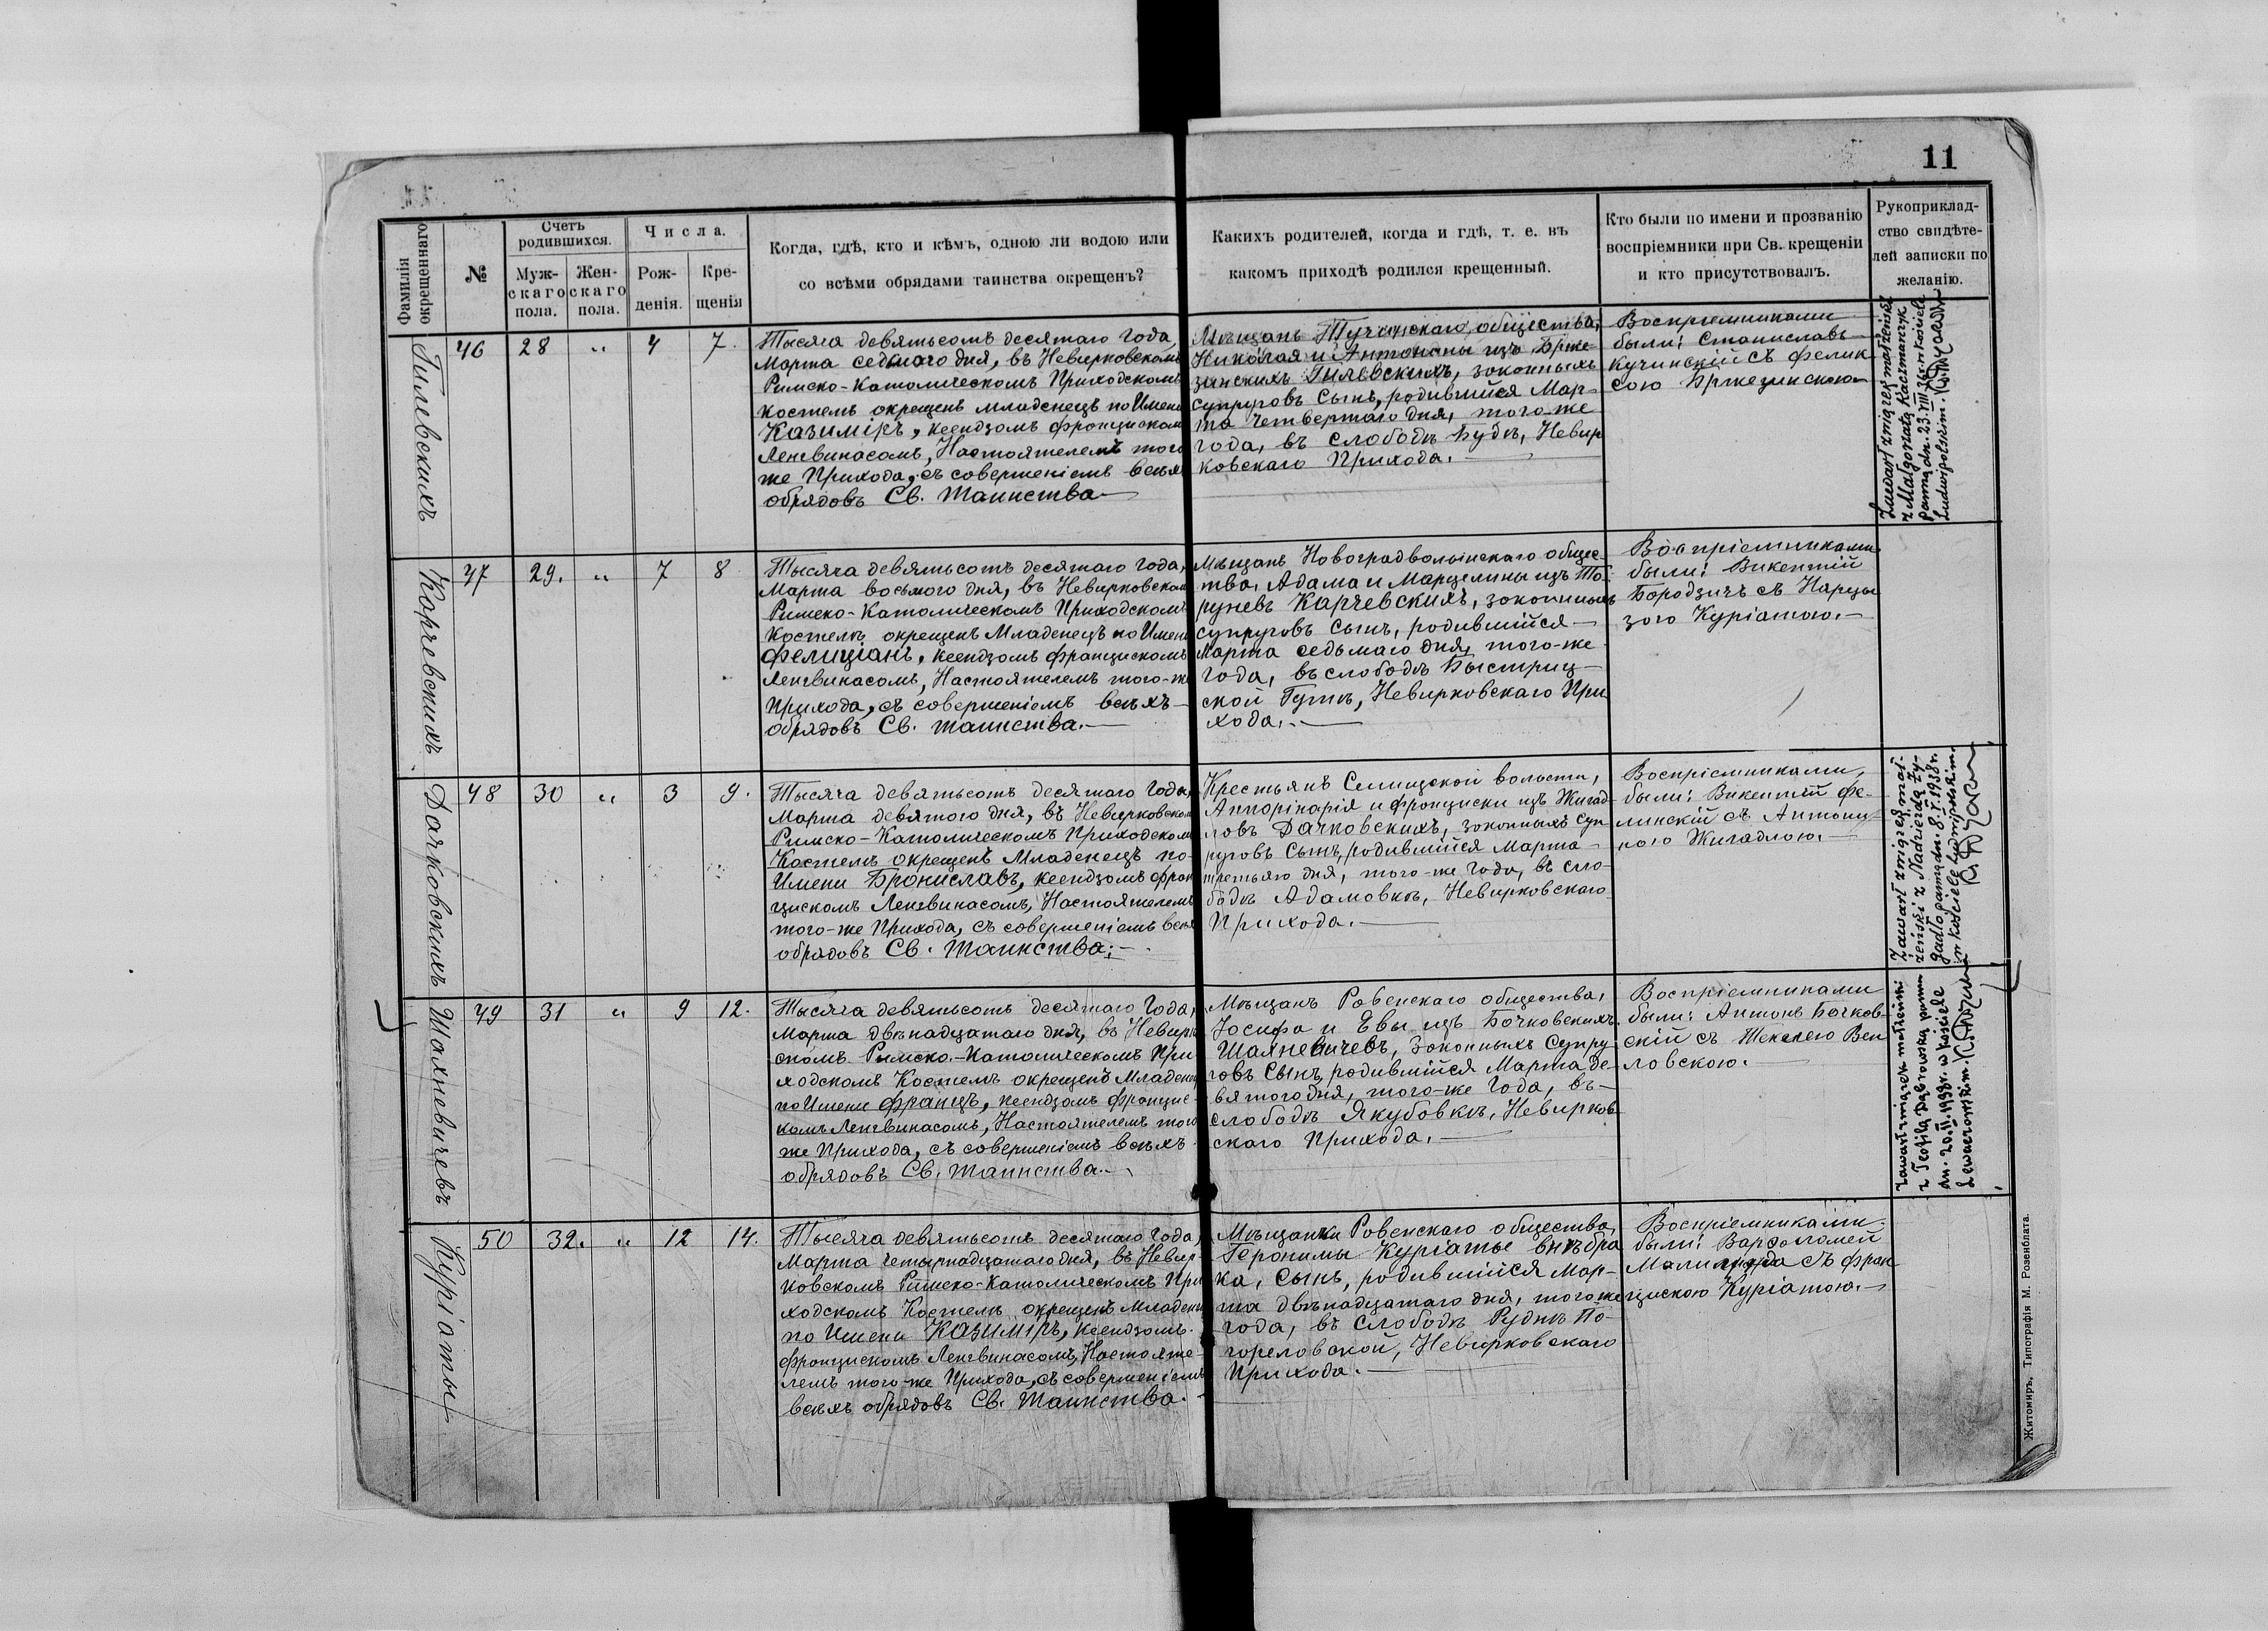 11
Фамилія
окрещеннаго
№
Счетъ
родившихся.
Муж-
скаго
пола.
Жен-
скаго
пола.
Числа.
Рож-
денія.
Кре-
щенія
Когда, гдѣ, кто и кѣмъ, одною ли водою или
со всѣми обрядами таинства окрещенъ?
Какихъ родителей, когда и гдѣ, т. е. въ
какомъ приходѣ родился крещенный.
Кто были по имени и прозванію
воспріемники при Св. крещеніи
и кто присутствовалъ.
Рукоприклад-
ство свидѣте-
лей записки по
желанію.
Гилевскихъ
46 28 " 4 7.
Тысяча девятьсотъ десятаго года,
Марта седьмаго дня, въ Невирковскомъ
Римско-Католическомъ Приходскомъ
Костелѣ окрещенъ младенецъ по Имени
Казиміръ, ксендзомъ Францискомъ
Ленгвинасомъ, Настоятелемъ того
же Прихода, съ совершеніемъ всѣхъ
обрядовъ Св. Таинства
Мѣщанъ Тучинскаго общества,
Николая и Антонины изъ Брже-
зинскихъ Гилевскихъ, законныхъ
супруговъ Сынъ, родившійся Мар-
та четвертаго дня, того-же
года, въ слободѣ Будкѣ, Невир
ковскаго Прихода.
Воспріемниками
были: Станиславъ
Кучинскій съ Фелик
сою Бржезинскою
Zawarł związek małżeński
z Małgorzatą Kaczmarczyk
panną dn. 23.VIII.36 r. w kościele
Ludwipolskim.
Карчевскихъ
47 29. " 7 8
Тысяча девятьсотъ десятаго года,
Марта восьмого дня, въ Невирковском
Римско-Католическомъ Приходскомъ
Костелѣ окрещенъ Младенецъ по Имени
Фелиціанъ, ксендзомъ Францискомъ
Ленгвинасомъ, Настоятелемъ того-же
Прихода, съ совершеніемъ всѣхъ
обрядовъ Св. таинства.
Мѣщанъ Новоградволынскаго общес-
тва, Адама и Марцелины изъ То-
руневъ Карчевскихъ, законныхъ
супруговъ Сынъ, родившійся
Марта седьмаго дня, того-же
года, въ слободѣ Быстриц-
ской Гутѣ, Невирковскаго При
хода.
Воспріемниками
были: Викентій
Бородзичъ съ Нарцы
зою Куріатою.
Дачковскихъ
48 30 " 3 9.
Тысяча девятьсотъ десятаго года,
Марта девятого дня, въ Невирковском
Римско-Католическомъ Приходском
Костелѣ окрещенъ Младенецъ по-
Имени Брониславъ, ксендзомъ Фран
цискомъ Ленгвинасомъ, Настоятелемъ
того-же Прихода, съ совершеніемъ всѣхъ
обрядовъ Св. Таинства.
Крестьянъ Селищской волости,
Аппорінарія и Франциски изъ Жигад
ловъ Дачковскихъ, законныхъ суп-
руговъ Сынъ, родившійся Марта
третьяго дня, того-же года, въ сло-
бодѣ Адамовкѣ, Невирковскаго
Прихода.
Воспріемниками,
были: Викентій Фе-
линскій съ Антони-
ною Жигадлою.
Zawarł związek mał-
żeński z Nadzieją Ży-
gadło panną dn. 8.V.1938 r.
w kościele Ludwipolskim.
Шахневичевъ
49 31 " 9 12.
Тысяча девятьсотъ десятаго Года,
Марта двѣнадцатаго дня, въ Невирк
скомъ Римско-Католическомъ При
ходскомъ Костелѣ окрещенъ Младенец
по Имени Францъ, ксендзомъ Францис-
комъ Ленгвинасомъ, Настоятелемъ того
же Прихода, съ совершеніемъ всѣхъ
обрядовъ Св. таинства.
Мѣщанъ Ровенскаго общества,
Іосифа и Евы изъ Бочковскихъ
Шахневичевъ, законныхъ Супру
говъ Сынъ, родившійся Марта де-
вятого дня, того-же года, въ
слободѣ Якубовкѣ, Невирков
скаго Прихода.
Воспріемниками
были: Антонъ Бочков-
скій съ Теклею Вен
ловскою.
Zawarł związek małżeński
z Teofilą Dąbrowską panną
dn. 20.II.1938 r. w kościele
Куріаты
50 32. " 12 14.
Тысяча девятьсотъ десятаго года,
Марта четырнадцатаго дня, въ Невир-
ковскомъ Римско-Католическомъ При
ходскомъ Костелѣ окрещенъ Младенец
по Имени Казиміръ, ксендзомъ
Францискомъ Ленгвинасомъ, Настояте-
лемъ того-же Прихода, съ совершеніемъ
всѣхъ обрядовъ Св. Таинства.
Мѣщанки Ровенскаго общества,
Геронимы Куріаты внѣ бра
ка, Сынъ, родившійся Мар-
та двѣнадцатаго дня, того же
года, въ слободѣ Руднѣ По-
гореловской, Невирковскаго
Прихода.
Воспріемниками
были: Варфоломей
съ Фран
цискою Куріатою.
Житомиръ, Типографія М. Розенблата.